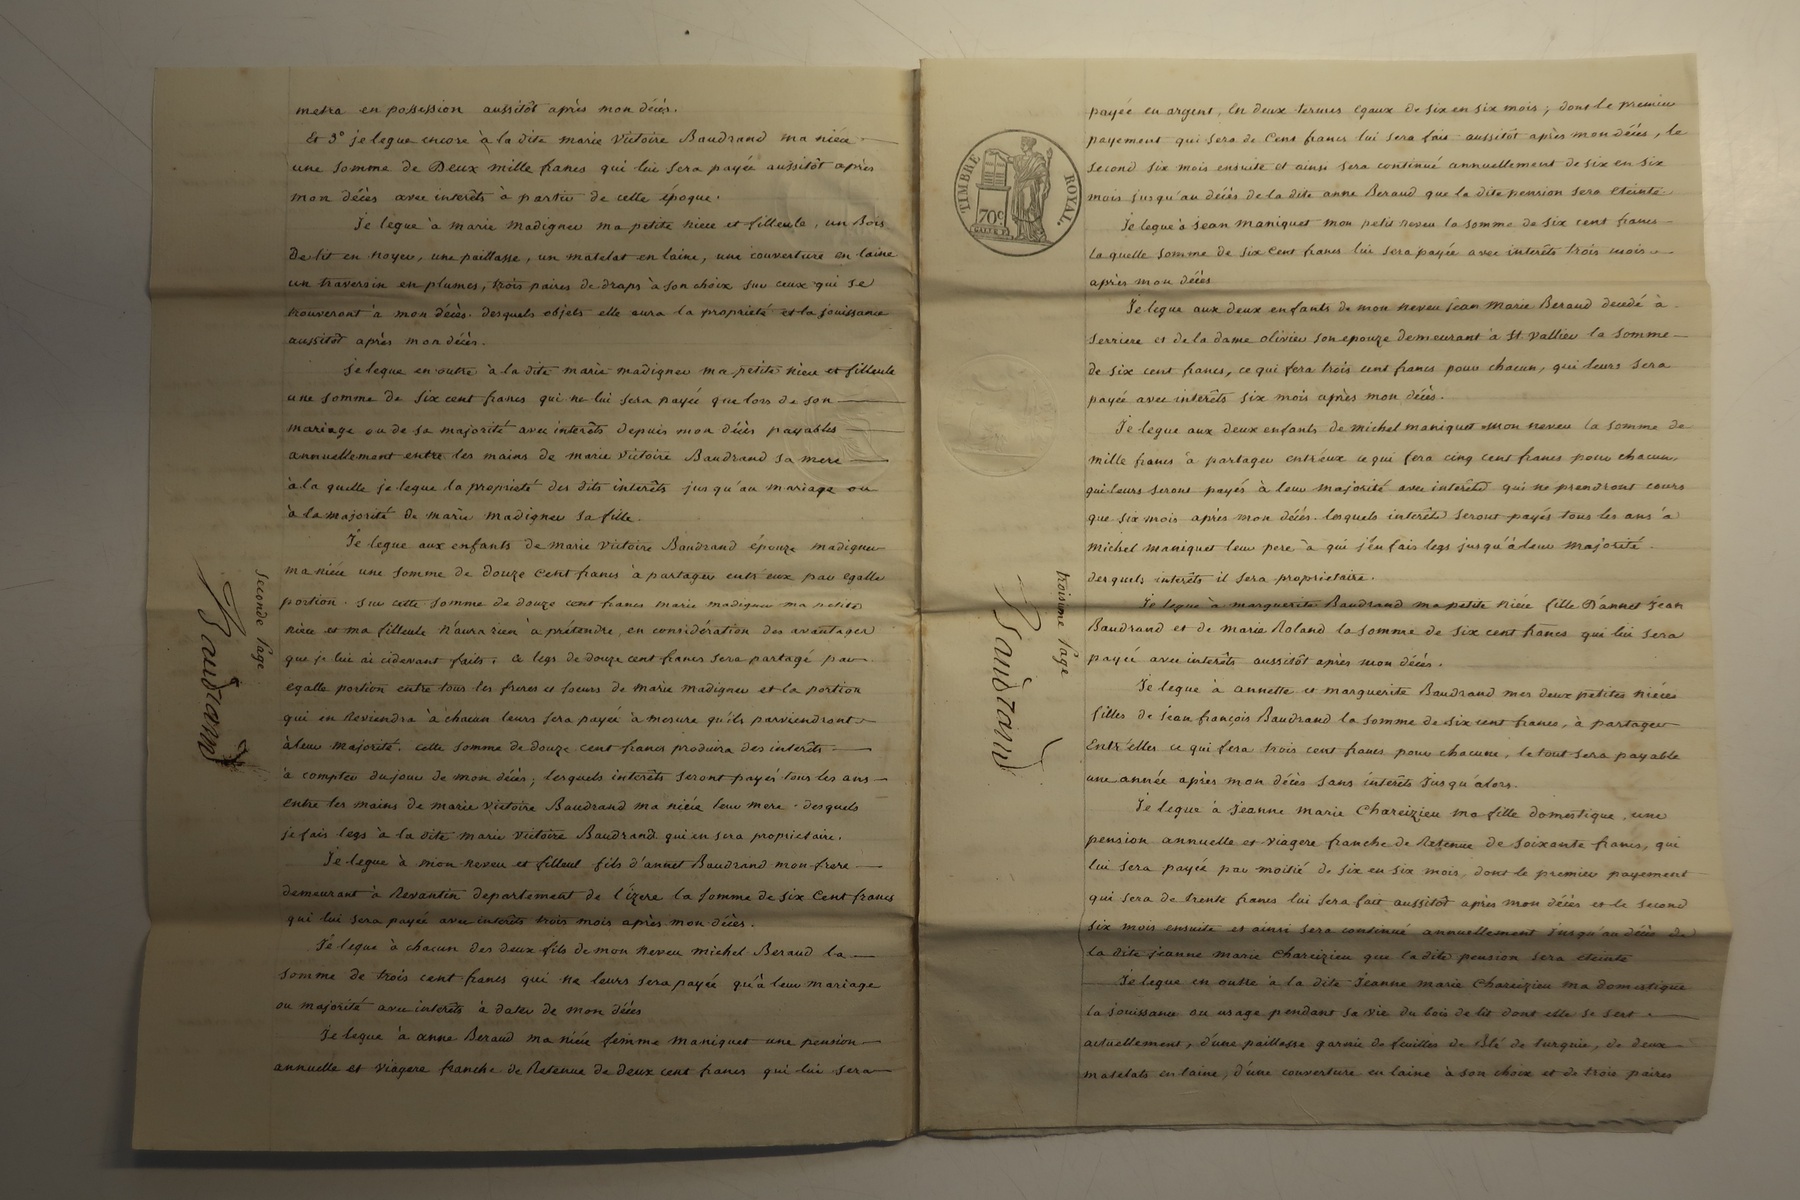 metra en possession aussitôt après mon décès.
Et 3° je legue encore à la dite marie Victoire Baudrand ma nièce
une somme de Deux mille francs qui lui sera payée aussitôt après
mon décès avec interêts à partir de cette époque.
Je legue à marie madigner ma petite niece et filleule, un Bois
De lit en noyer, une paillasse, un matelat en laine, une couverture en laine
un traversin en plumes, trois paires de draps à son choix sur ceux qui se
trouveront à mon décès. desquels objets elle aura la propriété et la jouissance
aussitôt après mon décès.
Je legue en outre à la dite marie madigner ma petite niece et filleule
une somme de six cent francs qui ne lui sera payée que lors de son
mariage ou de sa majorité avec interêts depuis mon décès payables
annuellement entre les mains de marie Victoire Baudrand sa mere
à la quelle je legue la propriété des dits interêts jusqu'au mariage ou
à la majorité de marie madigner sa fille.
Je legue aux enfants de marie Victoire Baudrand épouze madigner
ma nièce une somme de douze cent francs à partager entr'eux par egalle
portion. sur cette somme de douze cent francs marie madigner ma petite
nièce et ma filleule n'aura rien à prétendre, en considération des avantages
que je lui ai cidevant faits. ce legs de douze cent francs sera partagé par
egalle portion entre tous les freres et soeurs de marie madigner et la portion
qui en Reviendra à chacun leurs sera payée à mesure qu'ils parviendront
à leur majorité. cette somme de douze cent francs produira des interêts
à compter du jour de mon décès; lesquels interêts seront payés tous les ans
entre les mains de marie victoire Baudrand ma nièce leur mere. desquels
je fais legs à la dite marie victoire Baudrand qui en sera proprietaire.
Je legue à mon neveu et filleul fils d'annet Baudrand mon frere
demeurant à Revantin departement de l'izere la somme de six Cent francs
qui lui sera payée avec interêts trois mois après mon décès.
Je legue à chacun des deux fils de mon neveu michel Beraud la
somme de trois cent francs qui ne leurs sera payée qu'à leur mariage
ou majorité avec interêts à dater de mon décès
Je legue à anne Beraud ma nièce femme maniquet une pension
annuelle et viagere franche de Retenue de deux cent francs qui lui sera
seconde Page
Baudrand
payée en argent, En deux termes egaux de six en six mois; dont le premier
payement qui sera de Cent francs lui sera fait aussitôt après mon décès, le
second six mois ensuite et ainsi sera continué annuellement de six en six
mois jusqu'au décès de la dite anne Beraud que la dite pension sera eteinte
Je legue à jean maniquet mon petit neveu la somme de six cent francs
laquelle somme de six cent francs lui sera payée avec interêts trois mois
après mon décès
Je legue aux deux enfants de mon neveu jean Marie Beraud decedé à
serriere et de la dame olivier son epouze demeurant à St vallier la somme
de six cent francs, ce qui fera trois cent francs pour chacun, qui leurs sera
payée avec interêts six mois après mon décès.
Je legue aux deux enfants de michel maniquet mon neveu la somme de
mille francs à partager entr'eux ce qui fera cinq cent francs pour chacun,
qui leurs seront payés à leur majorité avec interêts qui ne prendront cours
que six mois après mon décès. lesquels interêts seront payés tous les ans à
michel maniquet leur pere à qui j'en fais legs jusqu'à leur majorité.
desquels interêts il sera proprietaire.
Je legue à marguerite Baudrand ma petite nièce fille D'annet Jean
Baudrand et de marie Roland la somme de six cent francs qui lui sera
payée avec interêts aussitôt après mon décès.
Je legue à annette et marguerite Baudrand mes deux petites nièces
filles de jean françois Baudrand la somme de six cent francs, à partager
Entr'elles ce qui fera trois cent francs pour chacune, le tout sera payable
une année après mon décès sans interêts jusqu'alors.
Je legue à jeanne marie Chareizieu ma fille domestique, une
pension annuelle et viagere franche de Retenue de soixante francs, qui
lui sera payée par moitié de six en six mois, dont le premier payement
qui sera de trente francs lui sera fait aussitôt après mon décès et le second
six mois ensuite et ainsi sera continué annuellement jusqu'au décès de
la dite jeanne marie Chareizieu que la dite pension sera eteinte
Je legue en outre à la dite Jeanne marie Chareizieu ma domestique
la jouissance ou usage pendant sa vie du bois de lit dont elle se sert
actuellement, d'une paillasse garnie de feuilles de Blé de turquie, de deux
matelats en laine, d'une couverture en laine à son choix et de trois paires
troisime Page
Baudrand
TIMBRE ROYAL.
70c